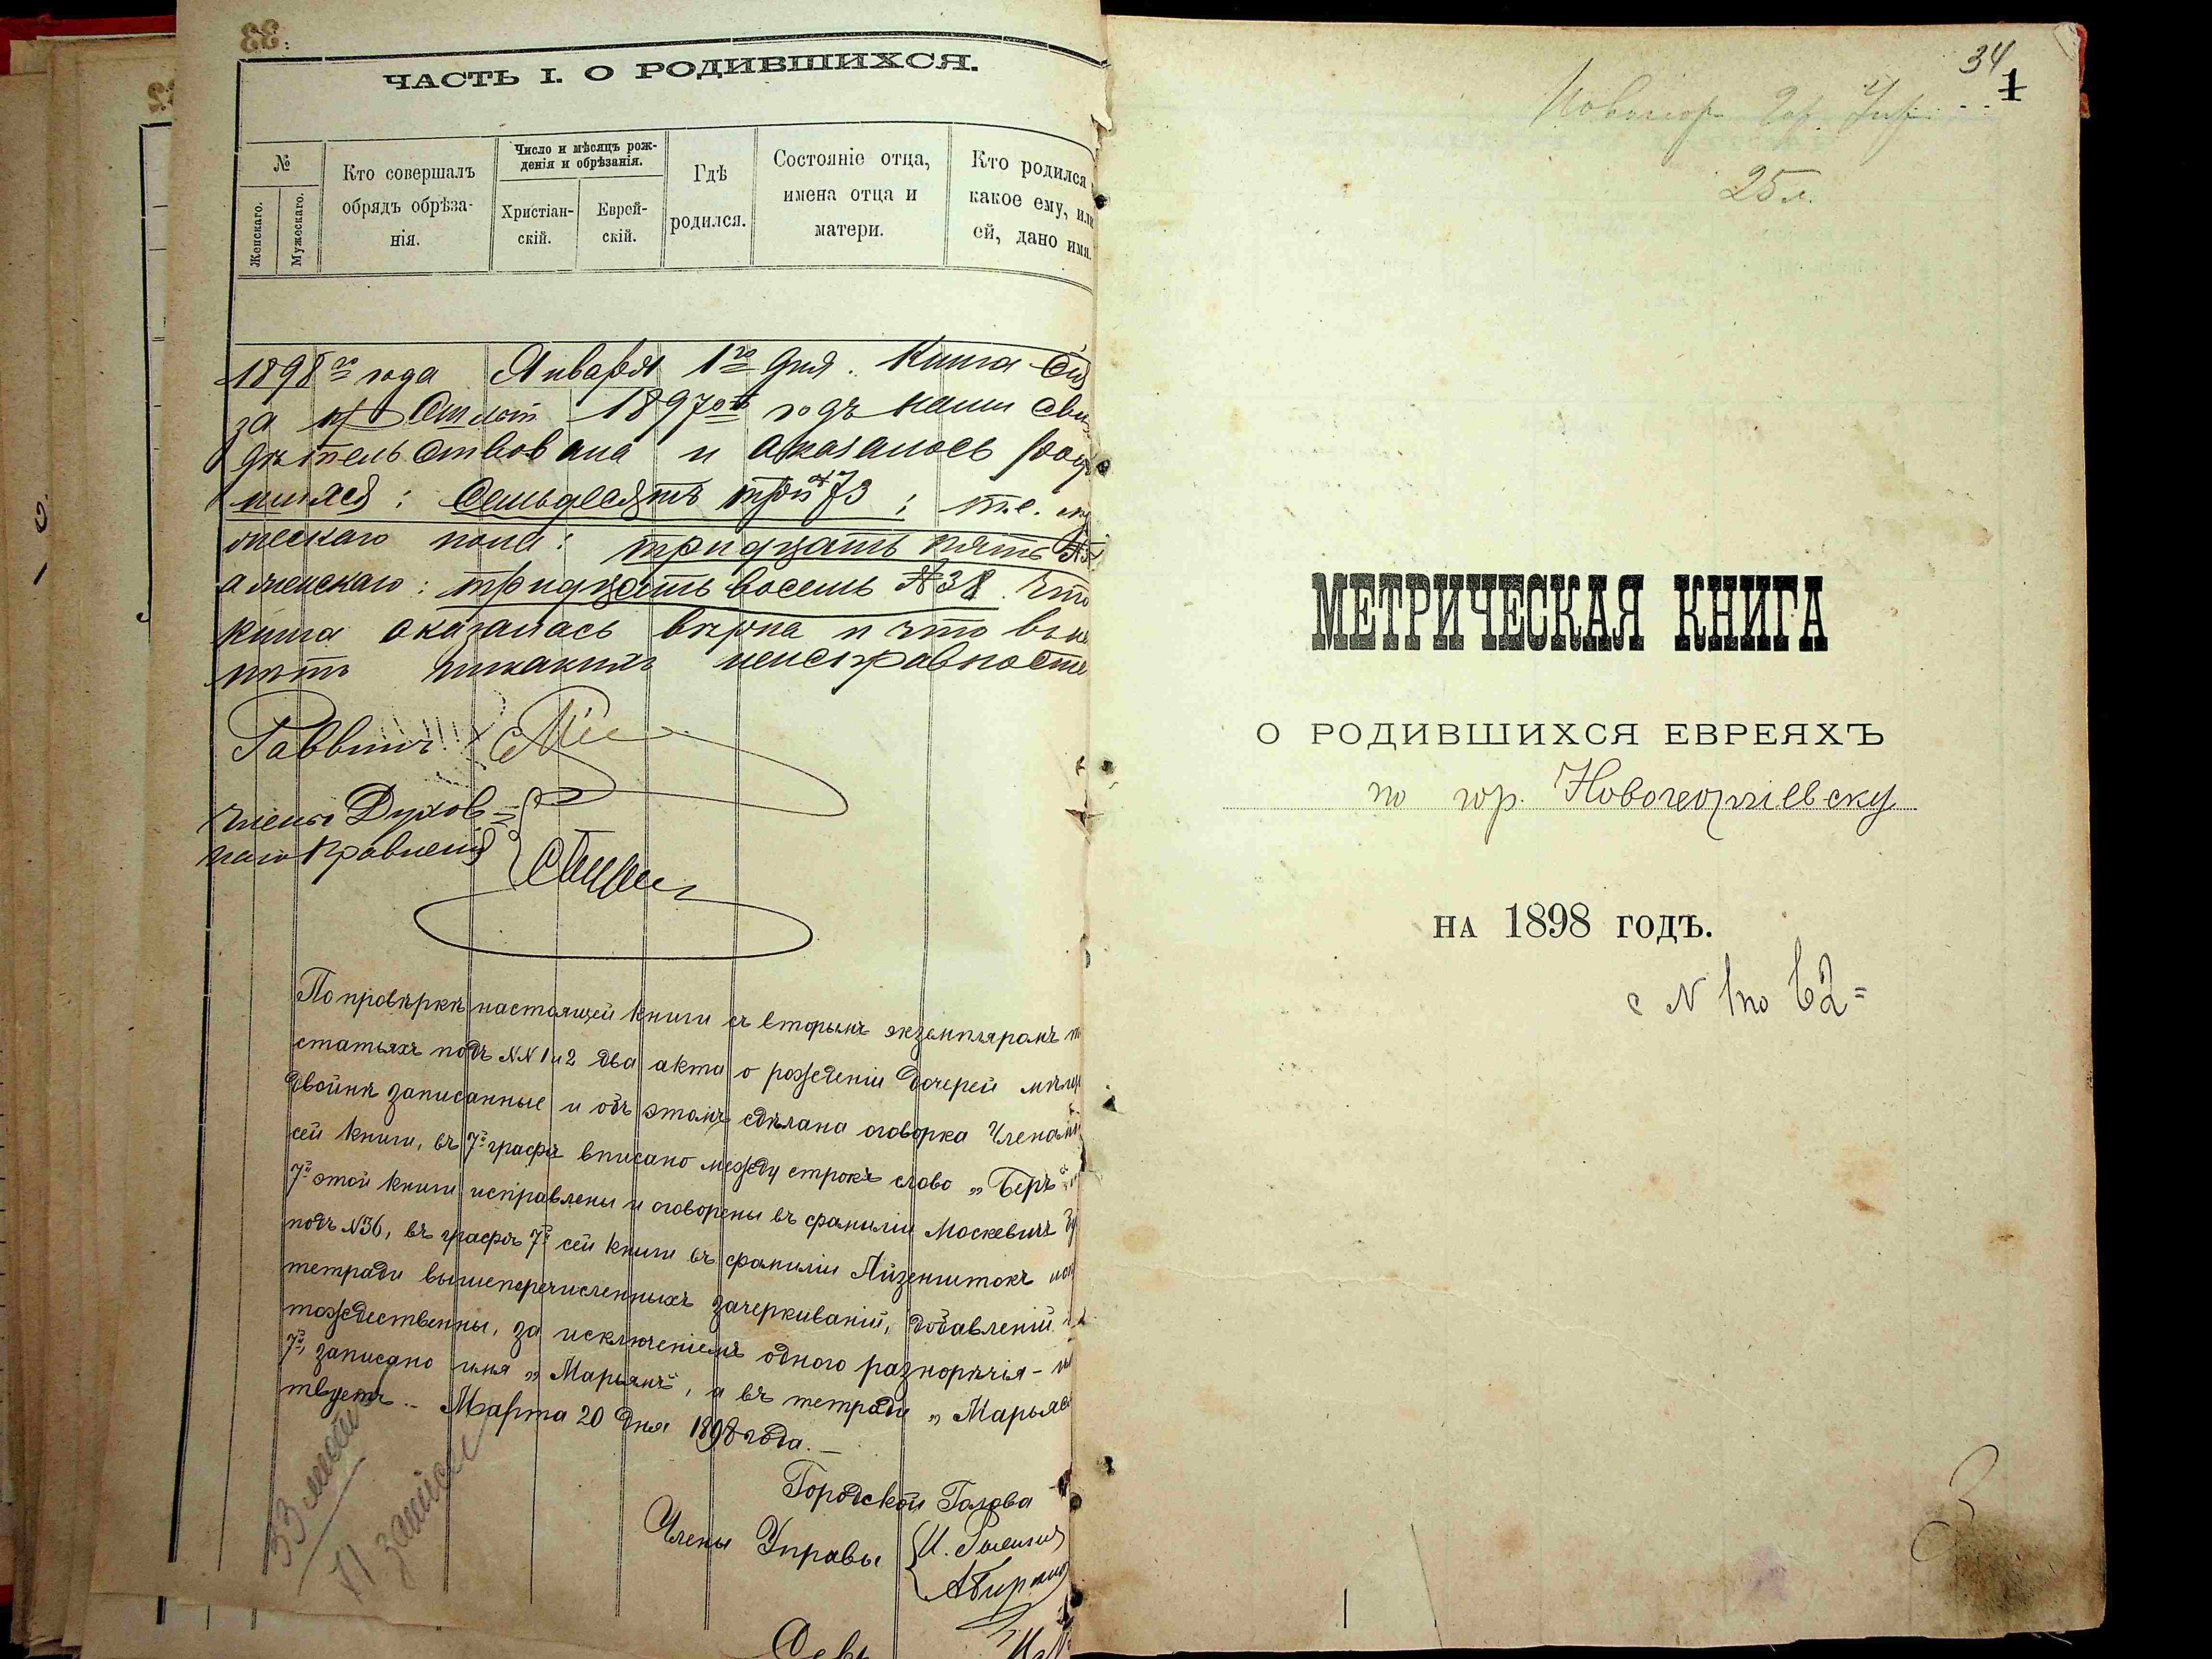 33
ЧАСТЬ I. О РОДИВШИХСЯ.
№
Женскаго.
Мужескаго.
Кто совершалъ
обрядъ обрѣза-
нія.
Число и мѣсяцъ рож-
денія и обрѣзанія.
Христіан-
скій.
Еврей-
скій.
Гдѣ
родился.
Состояніе отца,
имена отца и
матери.
Кто родился
какое ему, или
ей, дано имя.
1898го года Января 1го дня. Книга сія
за 1897ой годъ нами сви
дѣтельствована и оказалось род
шихся: семьдесятъ три №73; т.е. му
ческаго пола: тридцать пять
а женскаго: тридцать восемь №38. Что
книга оказалась вѣрна и что въ не
нѣтъ никакихъ неисправносте
Раввинъ
Члены Духов-
наго Правленія
По провѣркѣ настоящей книги съ вторымъ экземпляромъ
статьяхъ подъ NN 1 и 2 два акта о рожденіи дочерей
двойнѣ записанные и объ этомъ сдѣлана оговорка Членами
сей книги, въ 7й графѣ вписано между строкъ слово „Беръ"
7й этой книги исправлены и оговорены въ фамиліи Москевичъ
подъ N36, въ графѣ 7й сей книги въ фамиліи Айзенштокъ
тетради вышеперечисленныхъ зачеркиваній, добавленій
тождественны, за исключеніемъ одного разнорѣчія -
7й, записано имя „Марьямъ", а въ тетради „Марьяс
твуетъ. - Марта 20 дня 1898 года. -
Городской Голова
Члены Управы
33
71 записи
34
1
25 л.
МЕТРИЧЕСКАЯ КНИГА
О РОДИВШИХСЯ ЕВРЕЯХЪ
по гор. Новогеоргіевску
НА 1898 ГОДЪ.
с N 1 по 62=